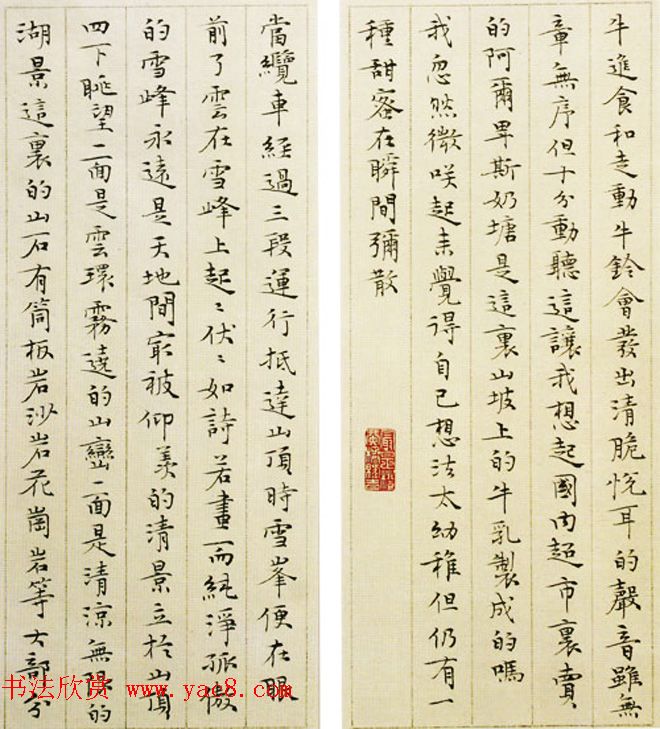 當纜車経過三段運行抵達山頂時雪峯便在眼
前了雲在雪峰上起〻伏〻如詩若畫而純淨孤傲
的雪峰永遠是天地間最被仰羨的清景立於山頂
四下眺望一面是雲環霧遶的山巒一面是清涼無限的
湖景這裏的山石有筒板岩沙岩花崗岩等大部分
牛進食和走動牛鈴會發出清脆悅耳的聲音雖無
章無序但十分動聽這讓我想起國內超市裏賣
的阿爾卑斯奶塘是這裏山坡上的牛乳製成的嗎
我忽然微咲起来覺得自己想法太幼稚但仍有一
種甜密在瞬間彌散
书法欣赏 www.yac8.com